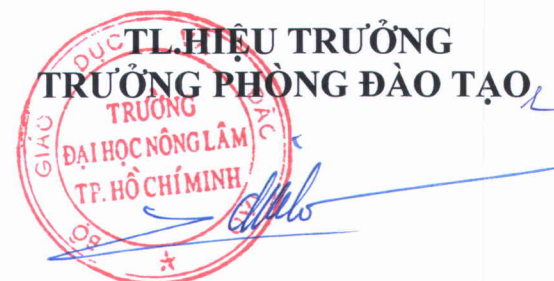 TL.HIỆU TRƯỞNG
TRƯỞNG PHÒNG ĐÀO TẠO
BỘ GIÁO DỤC VÀ ĐÀO TẠO
TRƯỜNG
ĐẠI HỌC NÔNG LÂM
TP. HỒ CHÍ MINH